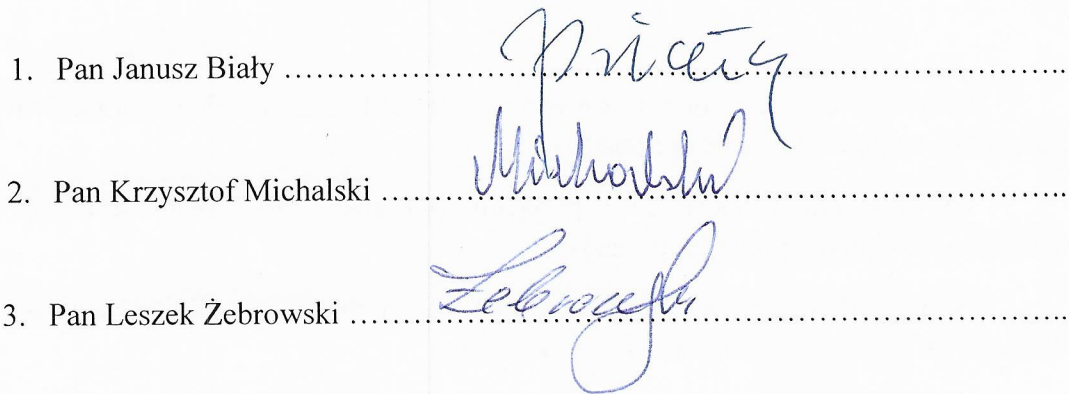 1. Pan Janusz Biały ........................................................................ JBiały
2. Pan Krzysztof Michalski ........................................................................ Michalski
3. Pan Leszek Żebrowski ........................................................................ Żebrowski